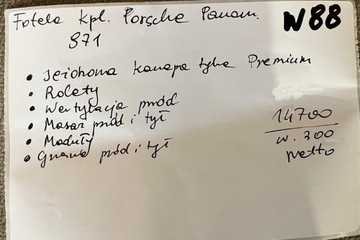 Fotele kpl. Porsche Panam. W88
971
• Dzielona kanapa tylna Premium
• Rolety
• Wentylacja przód
• Masaż przód i tył
• Moduły
• Grzane przód i tył
14700
w. 300
netto